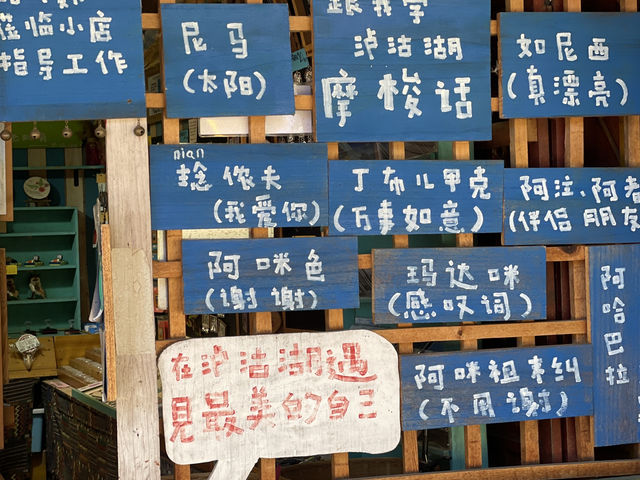 莅临小店
指导工作
尼马
(太阳)
跟我学
泸沽湖
摩梭话
如尼西
(真漂亮)
nian
捻你夫
(我爱你)
丁布儿甲克
(万事如意)
阿注、阿都
(伴侣朋友
阿咪色
(谢谢)
玛达咪
(感叹词)
阿哈巴拉
在泸沽湖遇
見最美的自己
阿咪祖末纠
(不用谢)